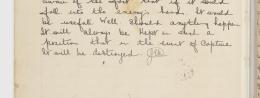 aware of the fact that if it should
fall into the enemy's hands it would
be useful. Well should anything happen
it will always be kept in such a
position that in the event of Capture
it will be destroyed